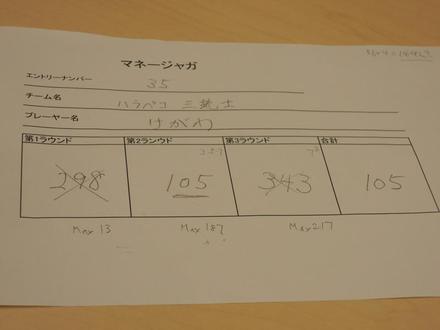 マネージャガ
エントリーナンバー 35
チーム名 ハラペコ 三銃士
プレーヤー名 けがわ
第1ラウンド 第2ランウド 第3ラウンド 合計
298 105 343 105
Max 13 Max 187 Max 217